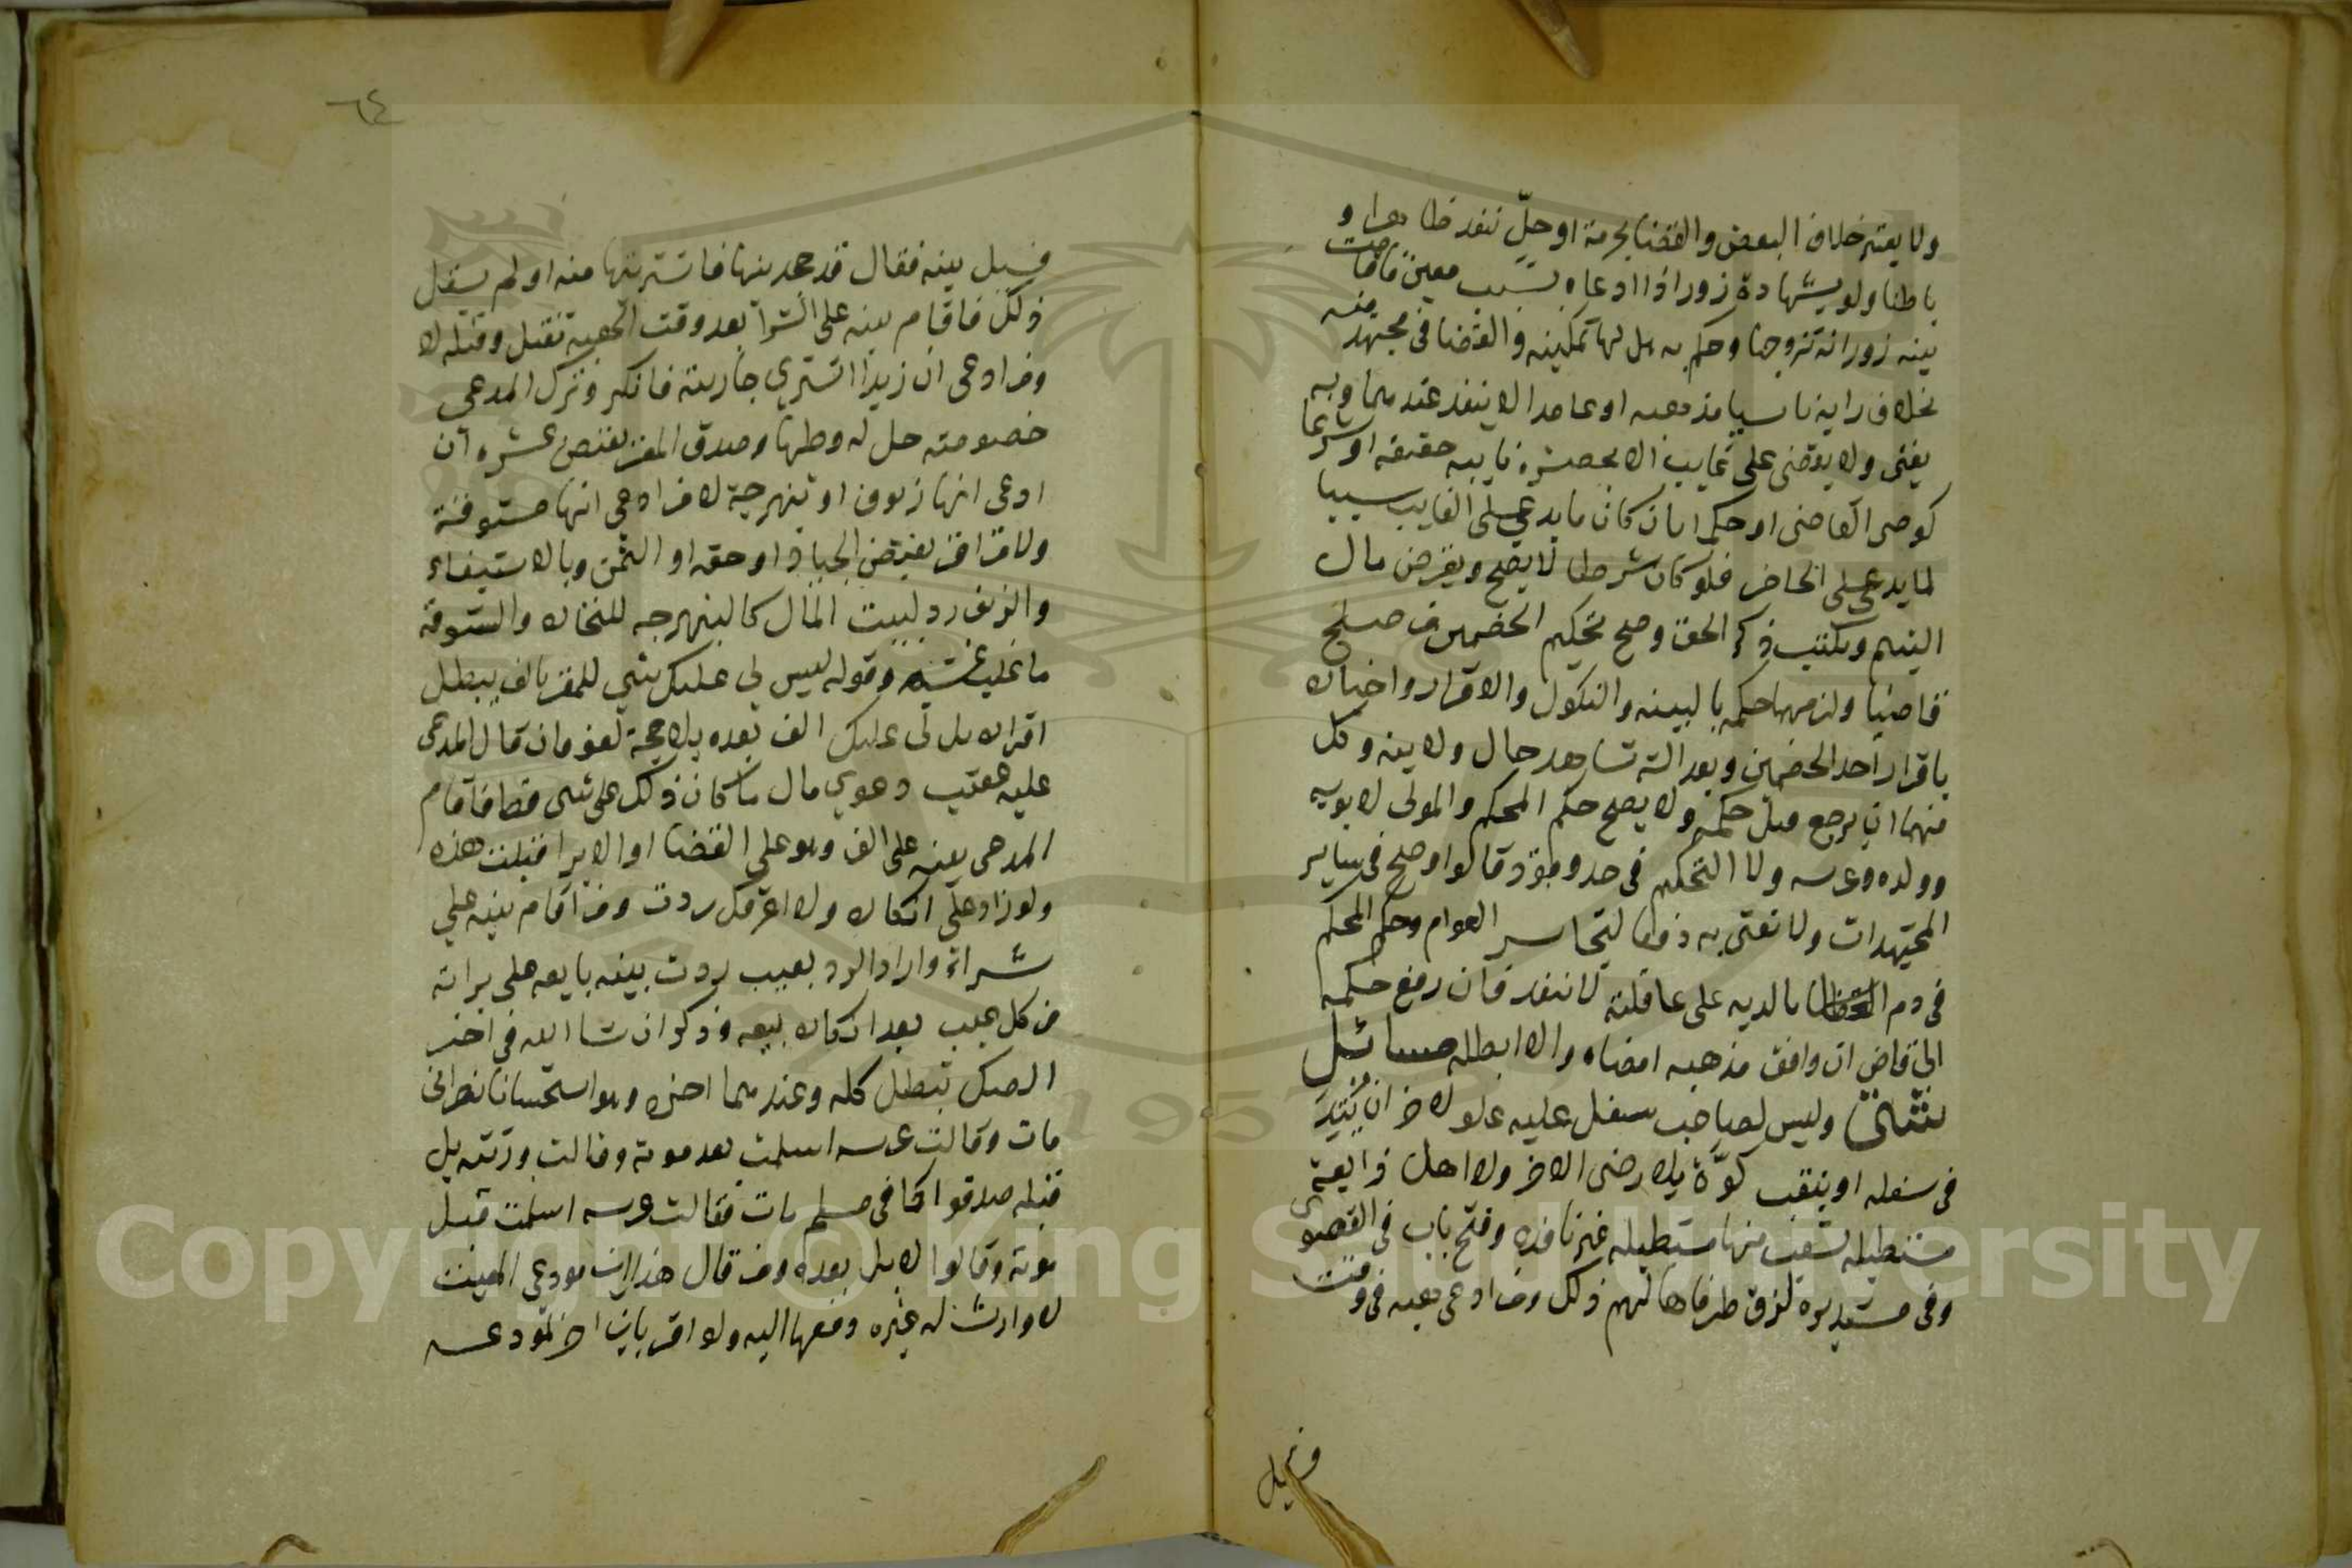 ولا يعتبر خلاف البعض والقضا بحرمة او حلّ ننفذ ظاهرا و
باطنا ولو بشهادة زور اذا ادعاه بسبب معين فاقامت
بينه زورا انه تزوجها وحكم به حل لها تمكينه والقضا في مجتهد فيه
بخلاف رايه ناسيا مذهبه او عامدا لا ينفذ عندهما وبه
يفتى ولا يقضى على غايب الا بحضرة نايبه حقيقة او شرعا
كوصى القاضى او حكما بان كان ما يدعى على الغايب سببا
لما يدعى على الحاضر فلو كان شرطا لا يصح ويقرض مال
اليتيم ويكتب ذكر الحق وصح تحكيم الخصمين من صلح
قاضيا ولزمهما حكمه بالبينه والنكول والاقرار واخباره
باقرار احد الخصمين وبعدالة شاهد حال ولايته وكل
منهما ان يرجع قبل حكمه ولا يصح حكم المحكم والمولى لابويه
وولده وعرسه ولا التحكيم في حد وقود قالوا وصح في ساير
المجتهدات ولا تفتى به دفعا ليتجاسر العوام وحكم المحكم
في دم الخطا بالديه على عاقلته لا ننفذ فان رفع حكمه
الى قاض ان وافق مذهبه امضاه والا ابطله مسائل
شتى وليس لصاحب سفل عليه علو لاخر ان يَتِدَ
في سفله او ينقب كوّة بلا رضى الاخر ولا اهل زايغة
مستطيله تشعب منها مستطيله غير نافذه وفتح باب في القصوى
وفي مستديرة لزق طرفاها لهم ذلك ومن ادعى هبه في وقت
وسيل
٦٤
فسيل بينه فقال قد جحد ينها فاشتريتها منه او لم يقل
ذلك فاقام بينه على الشرآ بعد وقت الهبه تقبل وقبله لا
ومن ادعى ان زيدا اشترى جاريته فانكر وترك المدعى
خصومته حل له وطيها وصدق المقر بقبض عشره ان
ادعى انها زيوف او بنهرجة لا من ادعى انها ستوقة
ولا من اقر بقبض الجياد او حقه او الثمن وبالاستيفاء
والزيف رد لبيت المال كالبنهرجه للتجار والستوقه
ما غلب غشه وقوله ليس لي عليك شي للمقر بالف يبطل
اقراره بل لى عليك الف بعده بلا حجة لغو فان قال المدعى
عليه عقيب دعوي مال ما كان ذلك على شى قط فاقام
المدعى بينه على الف وهو على القضا او الابرا قبلت هذه
ولو زاد على انكاره ولا اعرفك ردت ومن اقام بينه على
شراء واراد الرد بعيب ردت بينه بايعه على براته
من كل عيب بعد انكاره بيعه وذكر ان شا الله في اخر
الصك تبطل كله وعندهما اخره وهو استحسان نصرانى
مات وقالت عرسه اسلمت بعد موته وقالت ورثته بل
قبله صدقوا كما في مسلم مات فقالت عرسه اسلمت قبل
موته وقالوا لا بل بعده ومن قال هذا ابن مودعى الميت
لا وارث له غيره دفعها اليه ولو اقر بابن اخر لمودعه